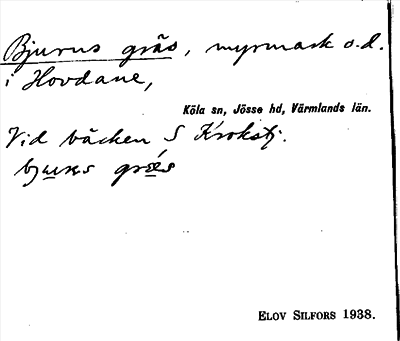 Bjurus gräs, myrmark o.d.
i Hovdane,
Köla sn, Jösse hd, Värmlands län.
Vid bäcken S Krokstj.
bjurus gräs
ELOV SILFORS 1938.